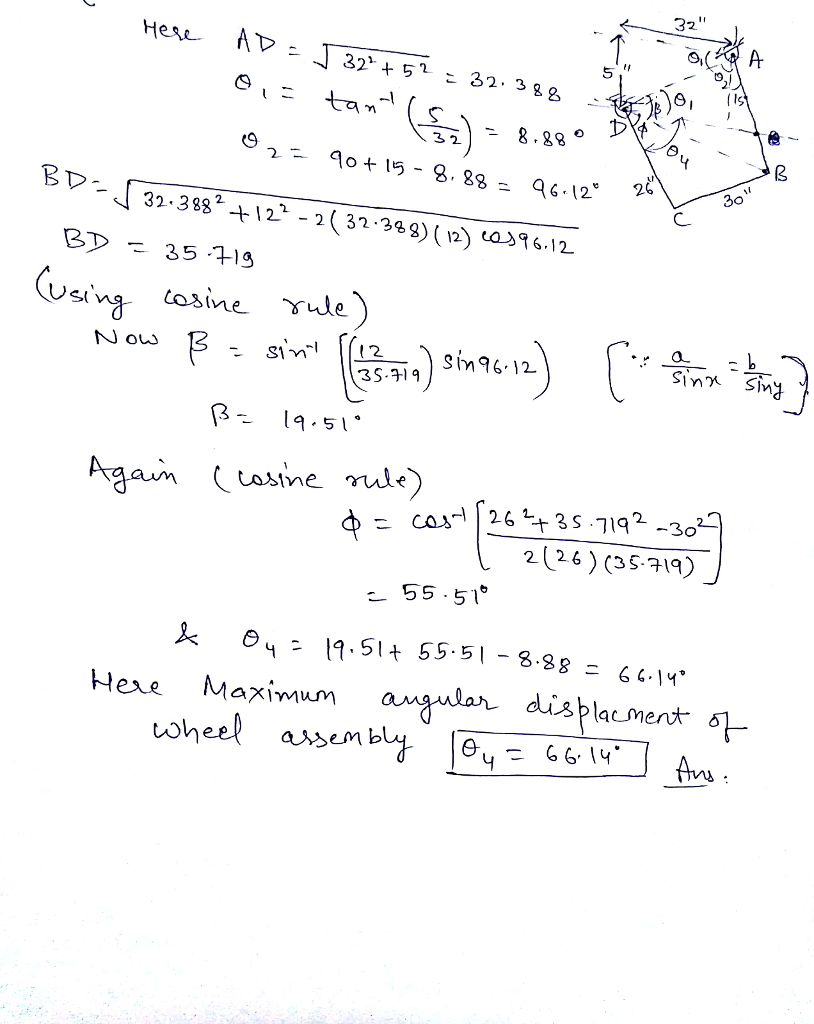 Here AD = √32² + 5² = 32.388
θ₁ = tan⁻¹ (5/32) = 8.88°
θ₂ = 90 + 15 - 8.88 = 96.12°
BD = √32.388² + 12² - 2(32.388)(12) cos96.12
BD = 35.719
(Using cosine rule)
Now β = sin⁻¹ [(12/35.719) sin96.12) [∵ a/sinx = b/siny]
β = 19.51°
Again (cosine rule)
φ = cos⁻¹ [26² + 35.719² - 30² / 2(26)(35.719)]
= 55.51°
& θ₄ = 19.51 + 55.51 - 8.88 = 66.14°
Here Maximum angular displacment of
wheel assembly θ₄ = 66.14° Ans:
32"
5"
θ₁
A
θ₂
15
D
β
θ₁
φ
θ₄
B
26"
30"
C